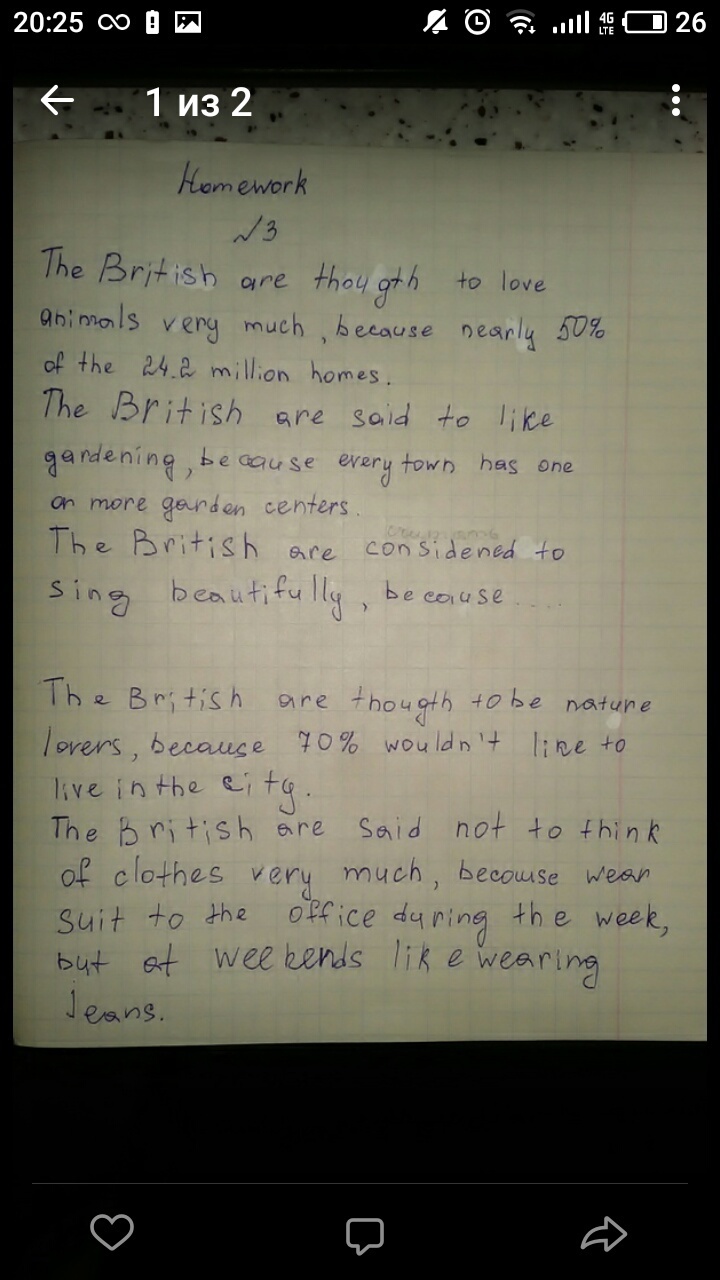 20:25 26
4G
LTE
1 из 2
Homework
№3
The British are thougth to love
animals very much, because nearly 50%
of the 24.2 million homes.
The British are said to like
gardening, because every town has one
or more garden centers.
The British are considened to
sing beautifully, because ....
The British are thougth to be nature
lovers, because 70% wouldn't like to
live in the city.
The British are said not to think
of clothes very much, because wear
suit to the office during the week,
but at weekends like wearing
jeans.